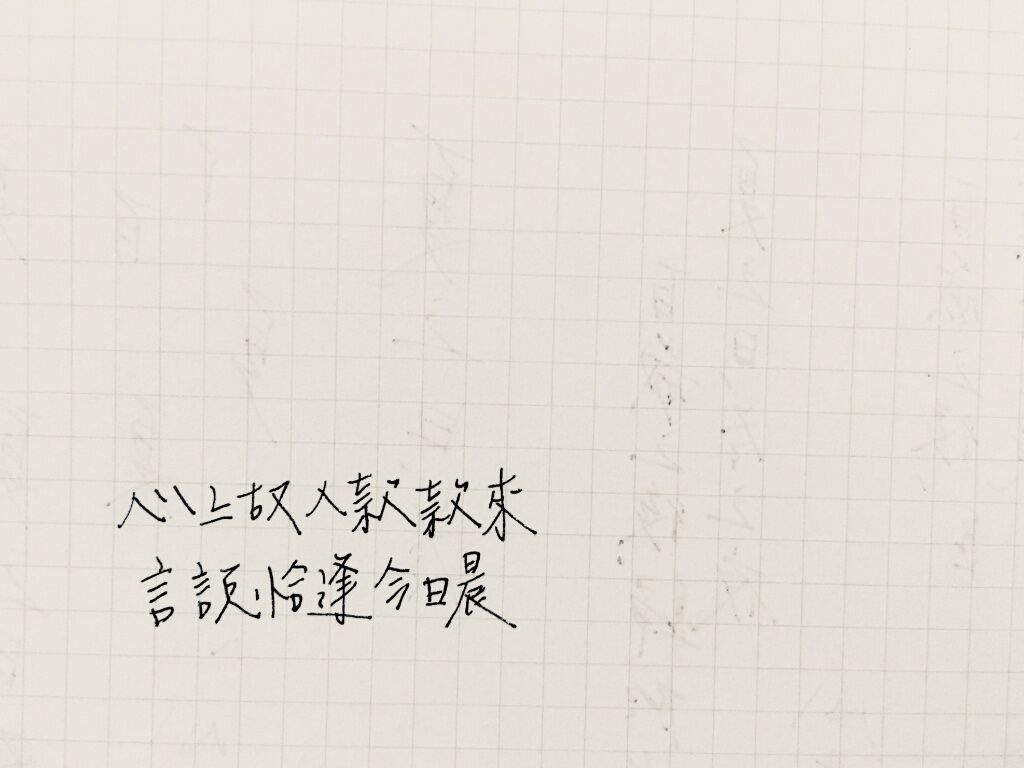 心上故人款款來
言談恰逢今日晨